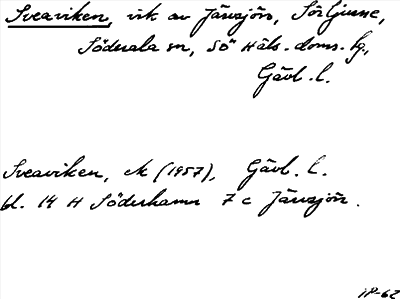 Sveaviken, vik av Järvsjön, Sörljusne,
Söderala sn, SÖ Häls. doms. hg,
Gävl. l.
Sveaviken, ek (1957), Gävl. l.
bl. 14 H Söderhamn 7 c Järvsjön.
IP-62